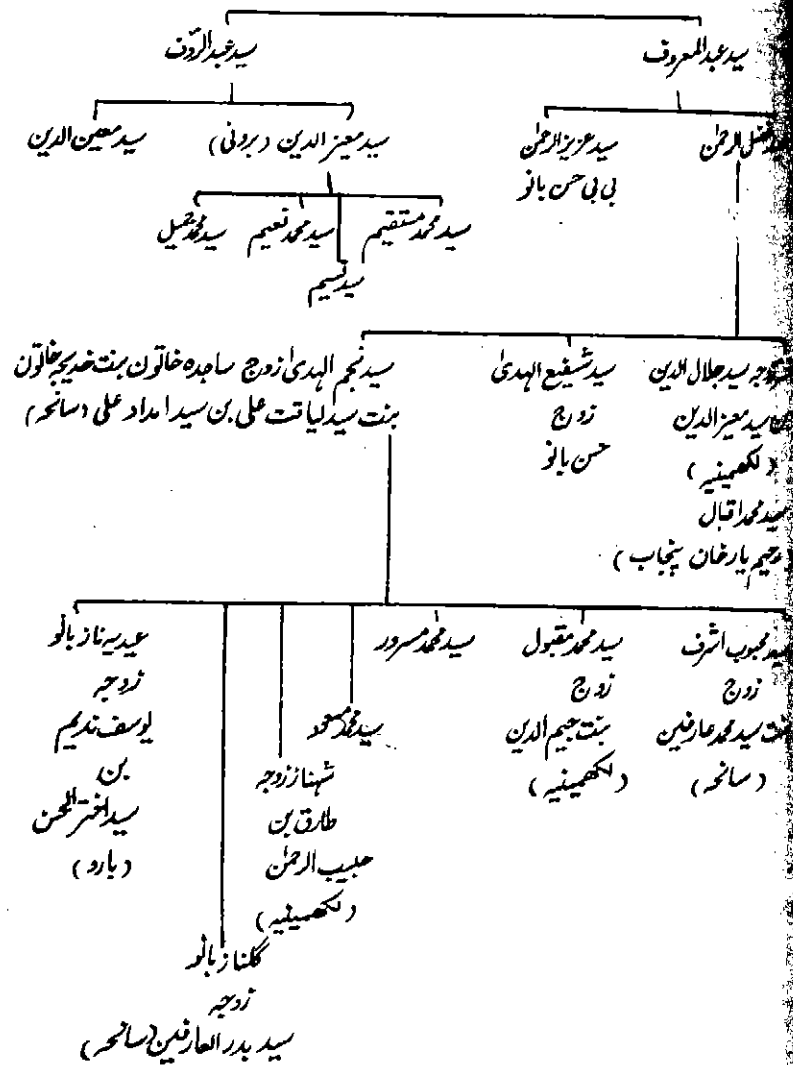 سید عبدالمعروف
سید عبدالرؤف
فضل الرحمٰن
سید عزیز الرحمٰن
بی بی حسن بانو
سید معیز الدین (برونی)
سید معین الدین
سید محمد مستقیم
سید محمد نعیم
سید محمد جمیل
سید نسیم
زوجہ سید جلال الدین
بن سید معیز الدین
(لکھمینیہ)
سید محمد اقبال
رحیم یار خان پنجاب)
سید شفیع الہدیٰ
زوج
حسن بانو
سید نجم الہدیٰ زوج ساجدہ خاتون بنت خدیجہ خاتون
بنت سید لیاقت علی بن سید امداد علی (سانحہ)
سید محبوب اشرف
زوج
بنت سید محمد عارفین
(سانحہ)
سید محمد مقبول
زوج
بنت جیم الدین
(لکھمینیہ)
سید محمد مسرور
سید محمد مسعود
شہناز زوجہ
طارق بن
حبیب الرحمٰن
(لکھمینیہ)
گلناز بانو
زوجہ
سید بدر العارفین (سانحہ)
عیدیہ ناز بانو
زوجہ
یوسف ندیم
بن
سید اختر الحسن
(بارو)